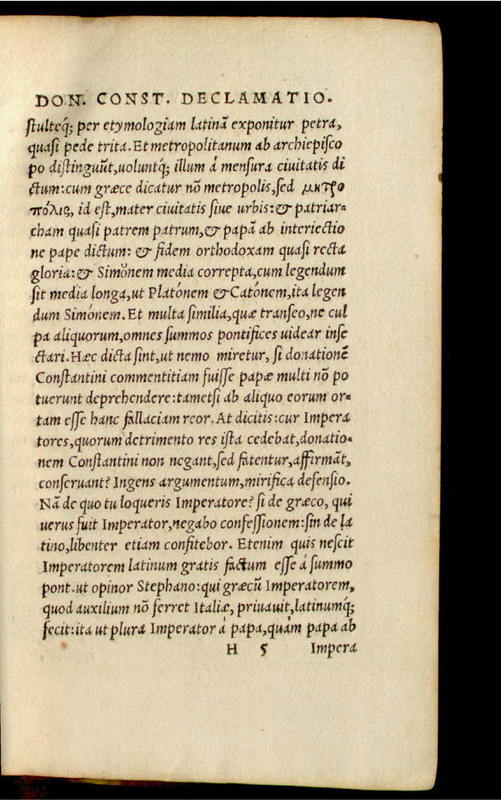 DON. CONST. DECLAMATIO.
stulteq́; per etymologiam latinã exponitur petra,
quasi pede trita. Et metropolitanum ab archiepisco
po distinguũt, voluntq́; illum á mensura ciuitatis di
ctum: cum græce dicatur nõ metropolis, sed μητρο
πόλις, id est, mater ciuitatis siue urbis: & patriar-
cham quasi patrem patrum, & papã ab interiectio
ne pape dictum: & fidem orthodoxam quasi recta
gloria: & Simŏnem media correpta, cum legendum
sit media longa, ut Platónem & Catónem, ita legen
dum Simónem. Et multa similia, quæ transeo, ne cul
pa aliquorum, omnes summos pontifices uidear inse
ctari. Hæc dicta sint, ut nemo miretur, si donationẽ
Constantini commentitiam fuisse papæ multi nõ po
tuerunt deprehendere: tametsi ab aliquo eorum or-
tam esse hanc fallaciam reor. At dicitis: cur Impera
tores, quorum detrimento res ista cedebat, donatio-
nem Constantini non negant, sed fatentur, affirmãt,
conseruant? Ingens argumentum, mirifica defensio.
Nã de quo tu loqueris Imperatore? si de græco, qui
uerus fuit Imperator, negabo confessionem: sin de la
tino, libenter etiam confitebor. Etenim quis nescit
Imperatorem latinum gratis factum esse á summo
pont. ut opinor Stephano: qui græcũ Imperatorem,
quod auxilium nõ ferret Italiæ, priuauit, latinumq́;
fecit: ita ut plura Imperator á papa, quàm papa ab
H 5 Impera